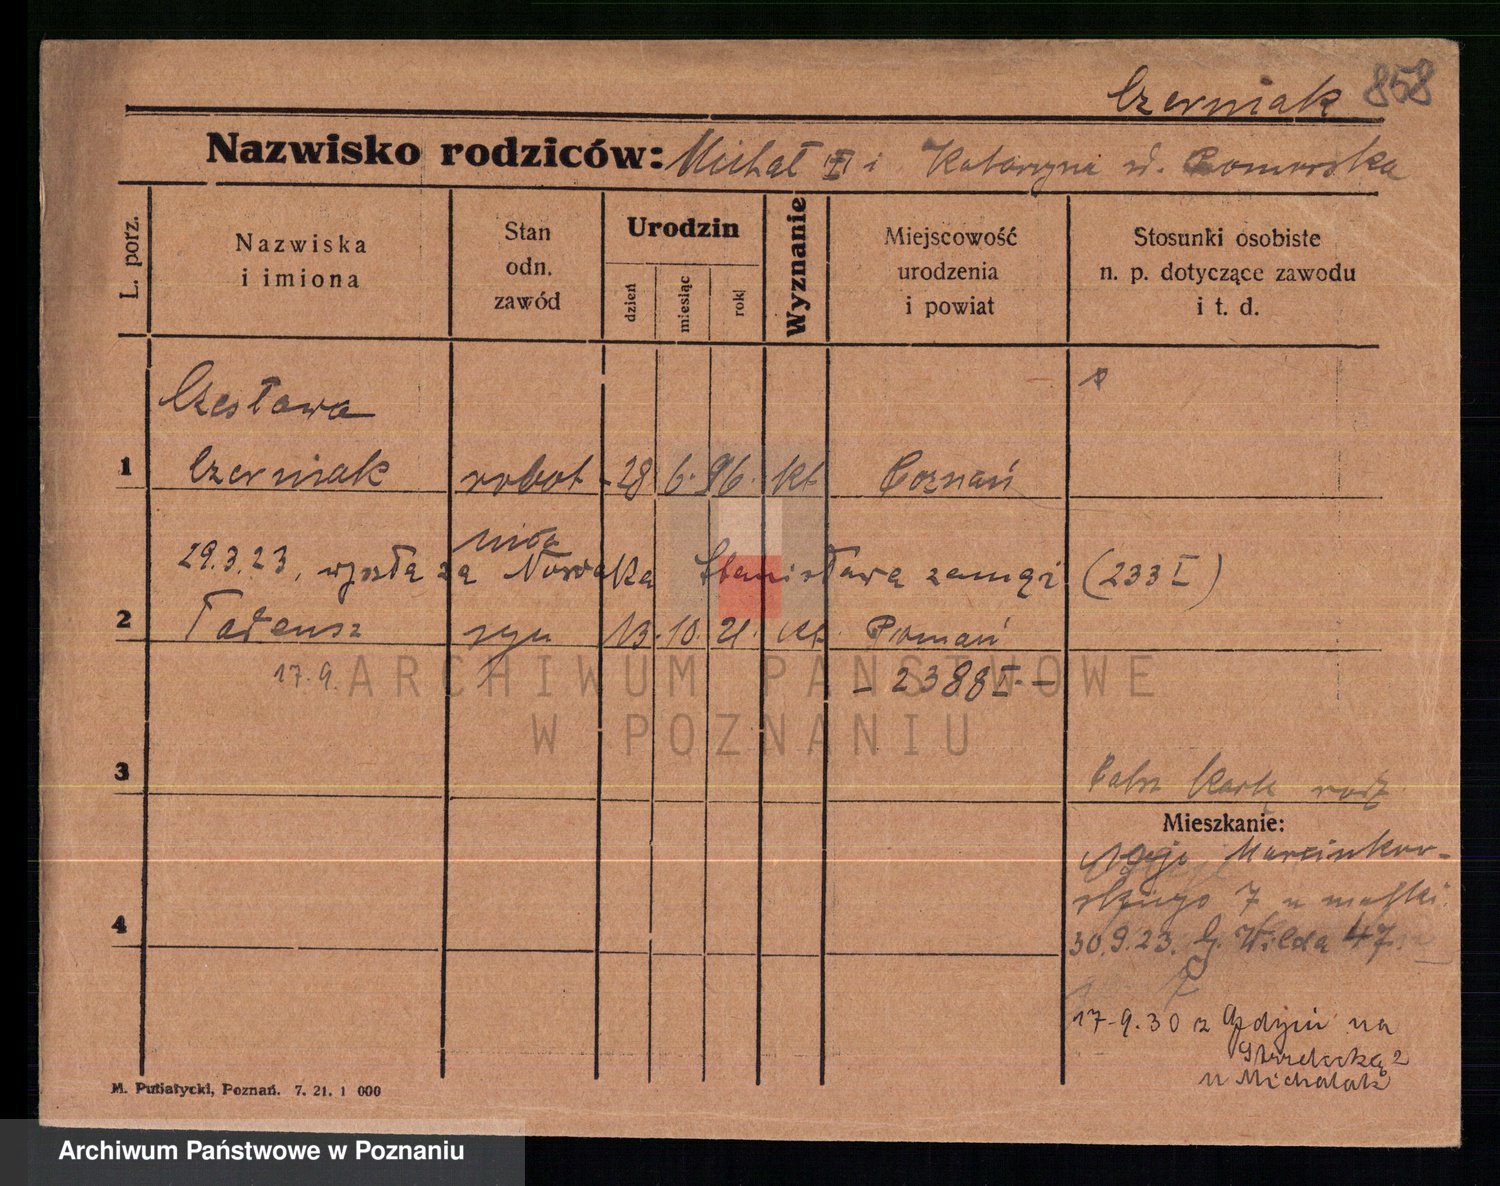 Czerniak 858
Nazwisko rodziców: Michał i Katarzyna Pomorska
L. porz.
Nazwiska
i imiona
Stan
odn.
zawód
Urodzin
dzień
miesiąc
rok
Wyznanie
Miejscowość
urodzenia
i powiat
Stosunki osobiste
n. p. dotyczące zawodu
i t. d.
Czesława
1 Czerniak robot- 28 6. 96. kt Poznań
nica
29.3.23, wyszła za Nowaka Stanisława zamąż (233 I)
2 Tadeusz syn 13. 10. 21. kt. Poznań
17.9. - 2388 I. -
3
kartę
Mieszkanie:
Marcinkow-
skiego 7 u matki.
4
30.9.23. G. Wilda 47.
17-9.30 z Gdyni na
Strzelecką 2
u Michalak
M. Putiatycki, Poznań. 7. 21. 1 000
ARCHIWUM PAŃSTWOWE
W POZNANIU
Archiwum Państwowe w Poznaniu